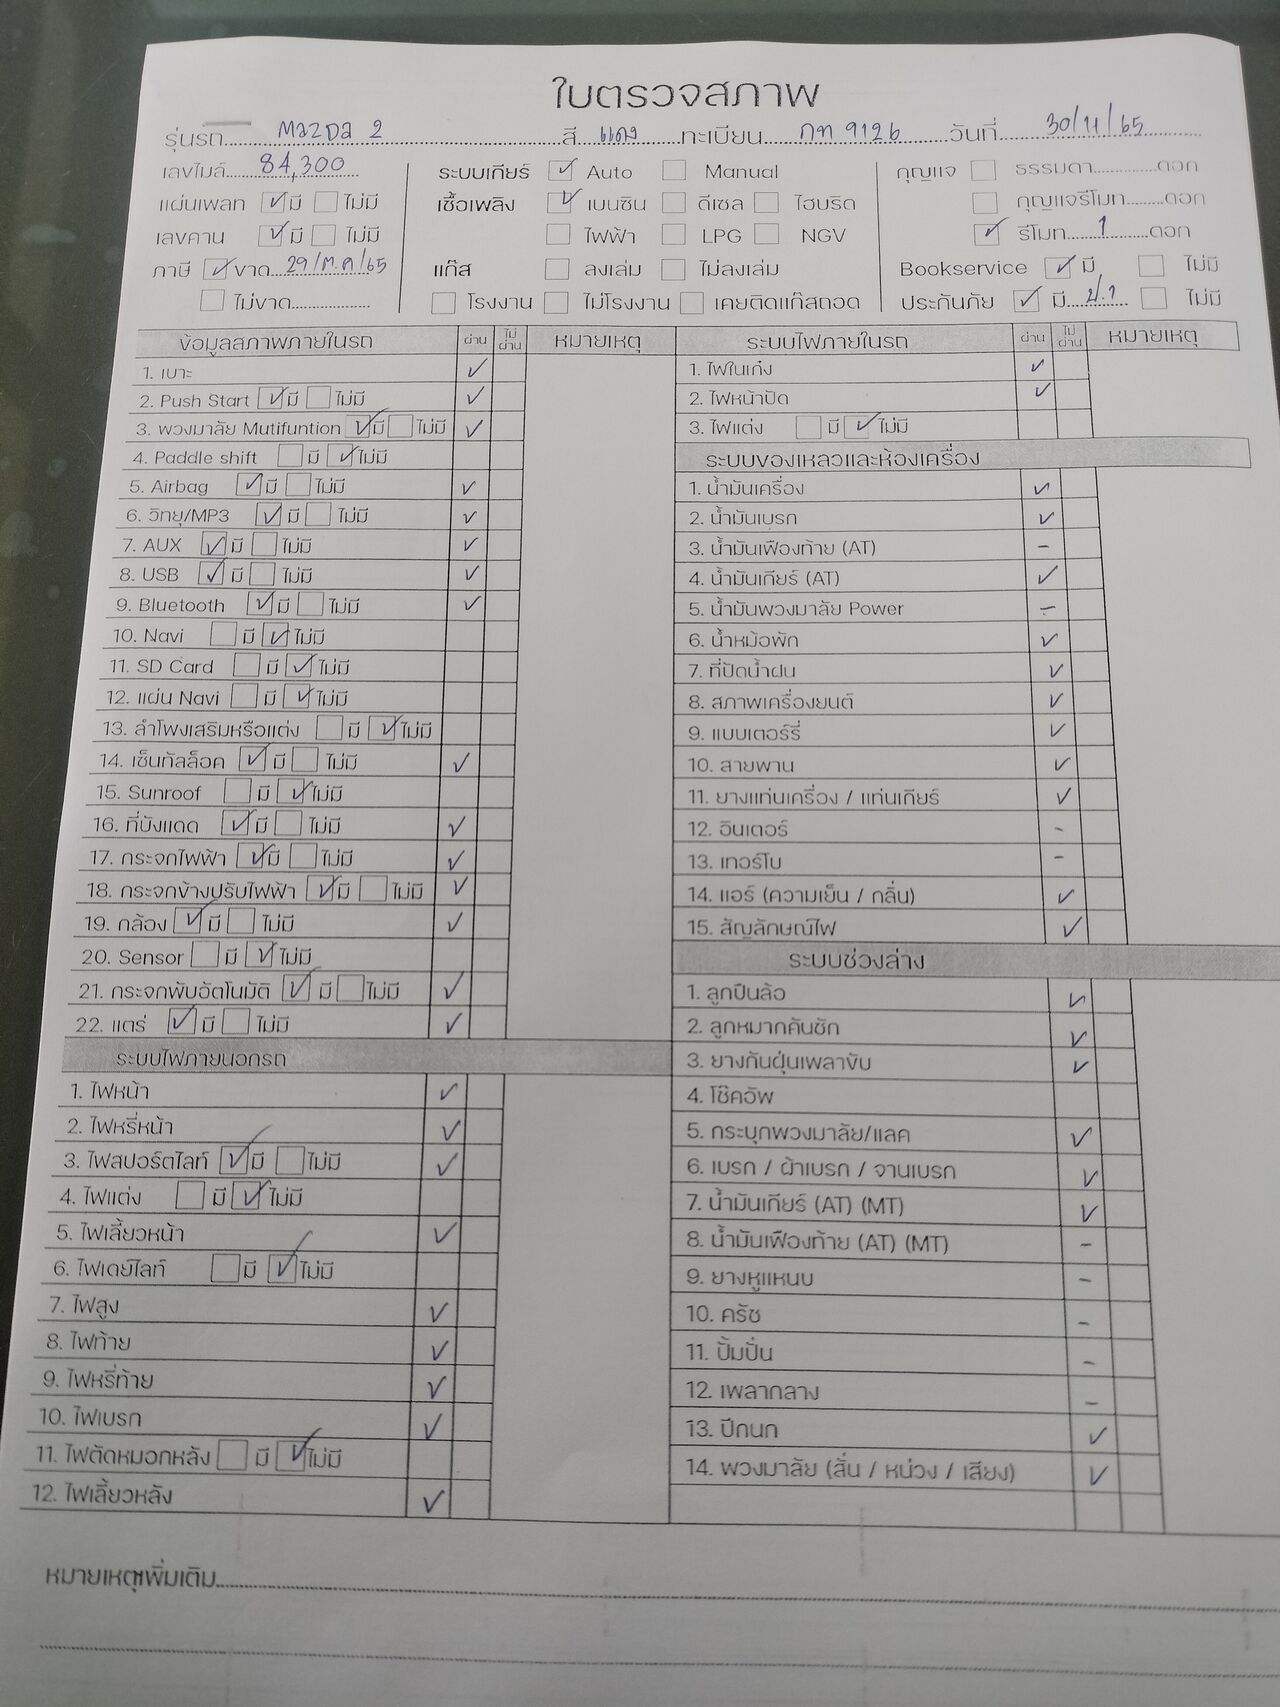 ใบตรวจสภาพ
รุ่นรถ Mazda 2 สี แดง ทะเบียน กท 9126 วันที่ 30/11/65
เลขไมล์ 84,300 ระบบเกียร์ ☑ Auto ☐ Manual กุญแจ ☐ ธรรมดา ดอก
แผ่นเพลท ☑ มี ☐ ไม่มี เชื้อเพลิง ☑ เบนซิน ☐ ดีเซล ☐ ไฮบริด ☐ กุญแจรีโมท ดอก
เลขคาน ☑ มี ☐ ไม่มี ☐ ไฟฟ้า ☐ LPG ☐ NGV ☑ รีโมท 1 ดอก
ภาษี ☑ ขาด 29/ต.ค/65 แก๊ส ☐ ลงเล่ม ☐ ไม่ลงเล่ม Bookservice ☑ มี ☐ ไม่มี
☐ ไม่ขาด ☐ โรงงาน ☐ ไม่โรงงาน ☐ เคยติดแก๊สถอด ประกันภัย ☑ มี ป.1 ☐ ไม่มี
ข้อมูลสภาพภายในรถ ผ่าน ไม่ผ่าน หมายเหตุ
1. เบาะ ✓
2. Push Start ☑ มี ☐ ไม่มี ✓
3. พวงมาลัย Mutifuntion ☑ มี ☐ ไม่มี ✓
4. Paddle shift ☐ มี ☑ ไม่มี
5. Airbag ☑ มี ☐ ไม่มี ✓
6. วิทยุ/MP3 ☑ มี ☐ ไม่มี ✓
7. AUX ☑ มี ☐ ไม่มี ✓
8. USB ☑ มี ☐ ไม่มี ✓
9. Bluetooth ☑ มี ☐ ไม่มี ✓
10. Navi ☐ มี ☑ ไม่มี
11. SD Card ☐ มี ☑ ไม่มี
12. แผ่น Navi ☐ มี ☑ ไม่มี
13. ลำโพงเสริมหรือแต่ง ☐ มี ☑ ไม่มี
14. เซ็นทัลล็อค ☑ มี ☐ ไม่มี ✓
15. Sunroof ☐ มี ☑ ไม่มี
16. ที่บังแดด ☑ มี ☐ ไม่มี ✓
17. กระจกไฟฟ้า ☑ มี ☐ ไม่มี ✓
18. กระจกข้างปรับไฟฟ้า ☑ มี ☐ ไม่มี ✓
19. กล้อง ☑ มี ☐ ไม่มี ✓
20. Sensor ☐ มี ☑ ไม่มี
21. กระจกพับอัตโนมัติ ☑ มี ☐ ไม่มี ✓
22. แตร่ ☑ มี ☐ ไม่มี ✓
ระบบไฟภายนอกรถ
1. ไฟหน้า ✓
2. ไฟหรี่หน้า ✓
3. ไฟสปอร์ตไลท์ ☑ มี ☐ ไม่มี ✓
4. ไฟแต่ง ☐ มี ☑ ไม่มี
5. ไฟเลี้ยวหน้า ✓
6. ไฟเดย์ไลท์ ☐ มี ☑ ไม่มี
7. ไฟสูง ✓
8. ไฟท้าย ✓
9. ไฟหรี่ท้าย ✓
10. ไฟเบรก ✓
11. ไฟตัดหมอกหลัง ☐ มี ☑ ไม่มี
12. ไฟเลี้ยวหลัง ✓
ระบบไฟภายในรถ ผ่าน ไม่ผ่าน หมายเหตุ
1. ไฟในเก๋ง ✓
2. ไฟหน้าปัด ✓
3. ไฟแต่ง ☐ มี ☑ ไม่มี
ระบบของเหลวและห้องเครื่อง
1. น้ำมันเครื่อง ✓
2. น้ำมันเบรก ✓
3. น้ำมันเฟืองท้าย (AT) -
4. น้ำมันเกียร์ (AT) ✓
5. น้ำมันพวงมาลัย Power -
6. น้ำหม้อพัก ✓
7. ที่ปัดน้ำฝน ✓
8. สภาพเครื่องยนต์ ✓
9. แบบเตอร์รี่ ✓
10. สายพาน ✓
11. ยางแท่นเครื่อง / แท่นเกียร์ ✓
12. อินเตอร์ -
13. เทอร์โบ -
14. แอร์ (ความเย็น / กลิ่น) ✓
15. สัญลักษณ์ไฟ ✓
ระบบช่วงล่าง
1. ลูกปืนล้อ ✓
2. ลูกหมากคันชัก ✓
3. ยางกันฝุ่นเพลาขับ ✓
4. โช๊คอัพ
5. กระบุกพวงมาลัย/แลค ✓
6. เบรก / ผ้าเบรก / จานเบรก ✓
7. น้ำมันเกียร์ (AT) (MT) ✓
8. น้ำมันเฟืองท้าย (AT) (MT) -
9. ยางหูแหนบ -
10. ครัช -
11. ปั้มปั่น -
12. เพลากลาง -
13. ปีกนก ✓
14. พวงมาลัย (สั่น / หน่วง / เสียง) ✓
หมายเหตุเพิ่มเติม